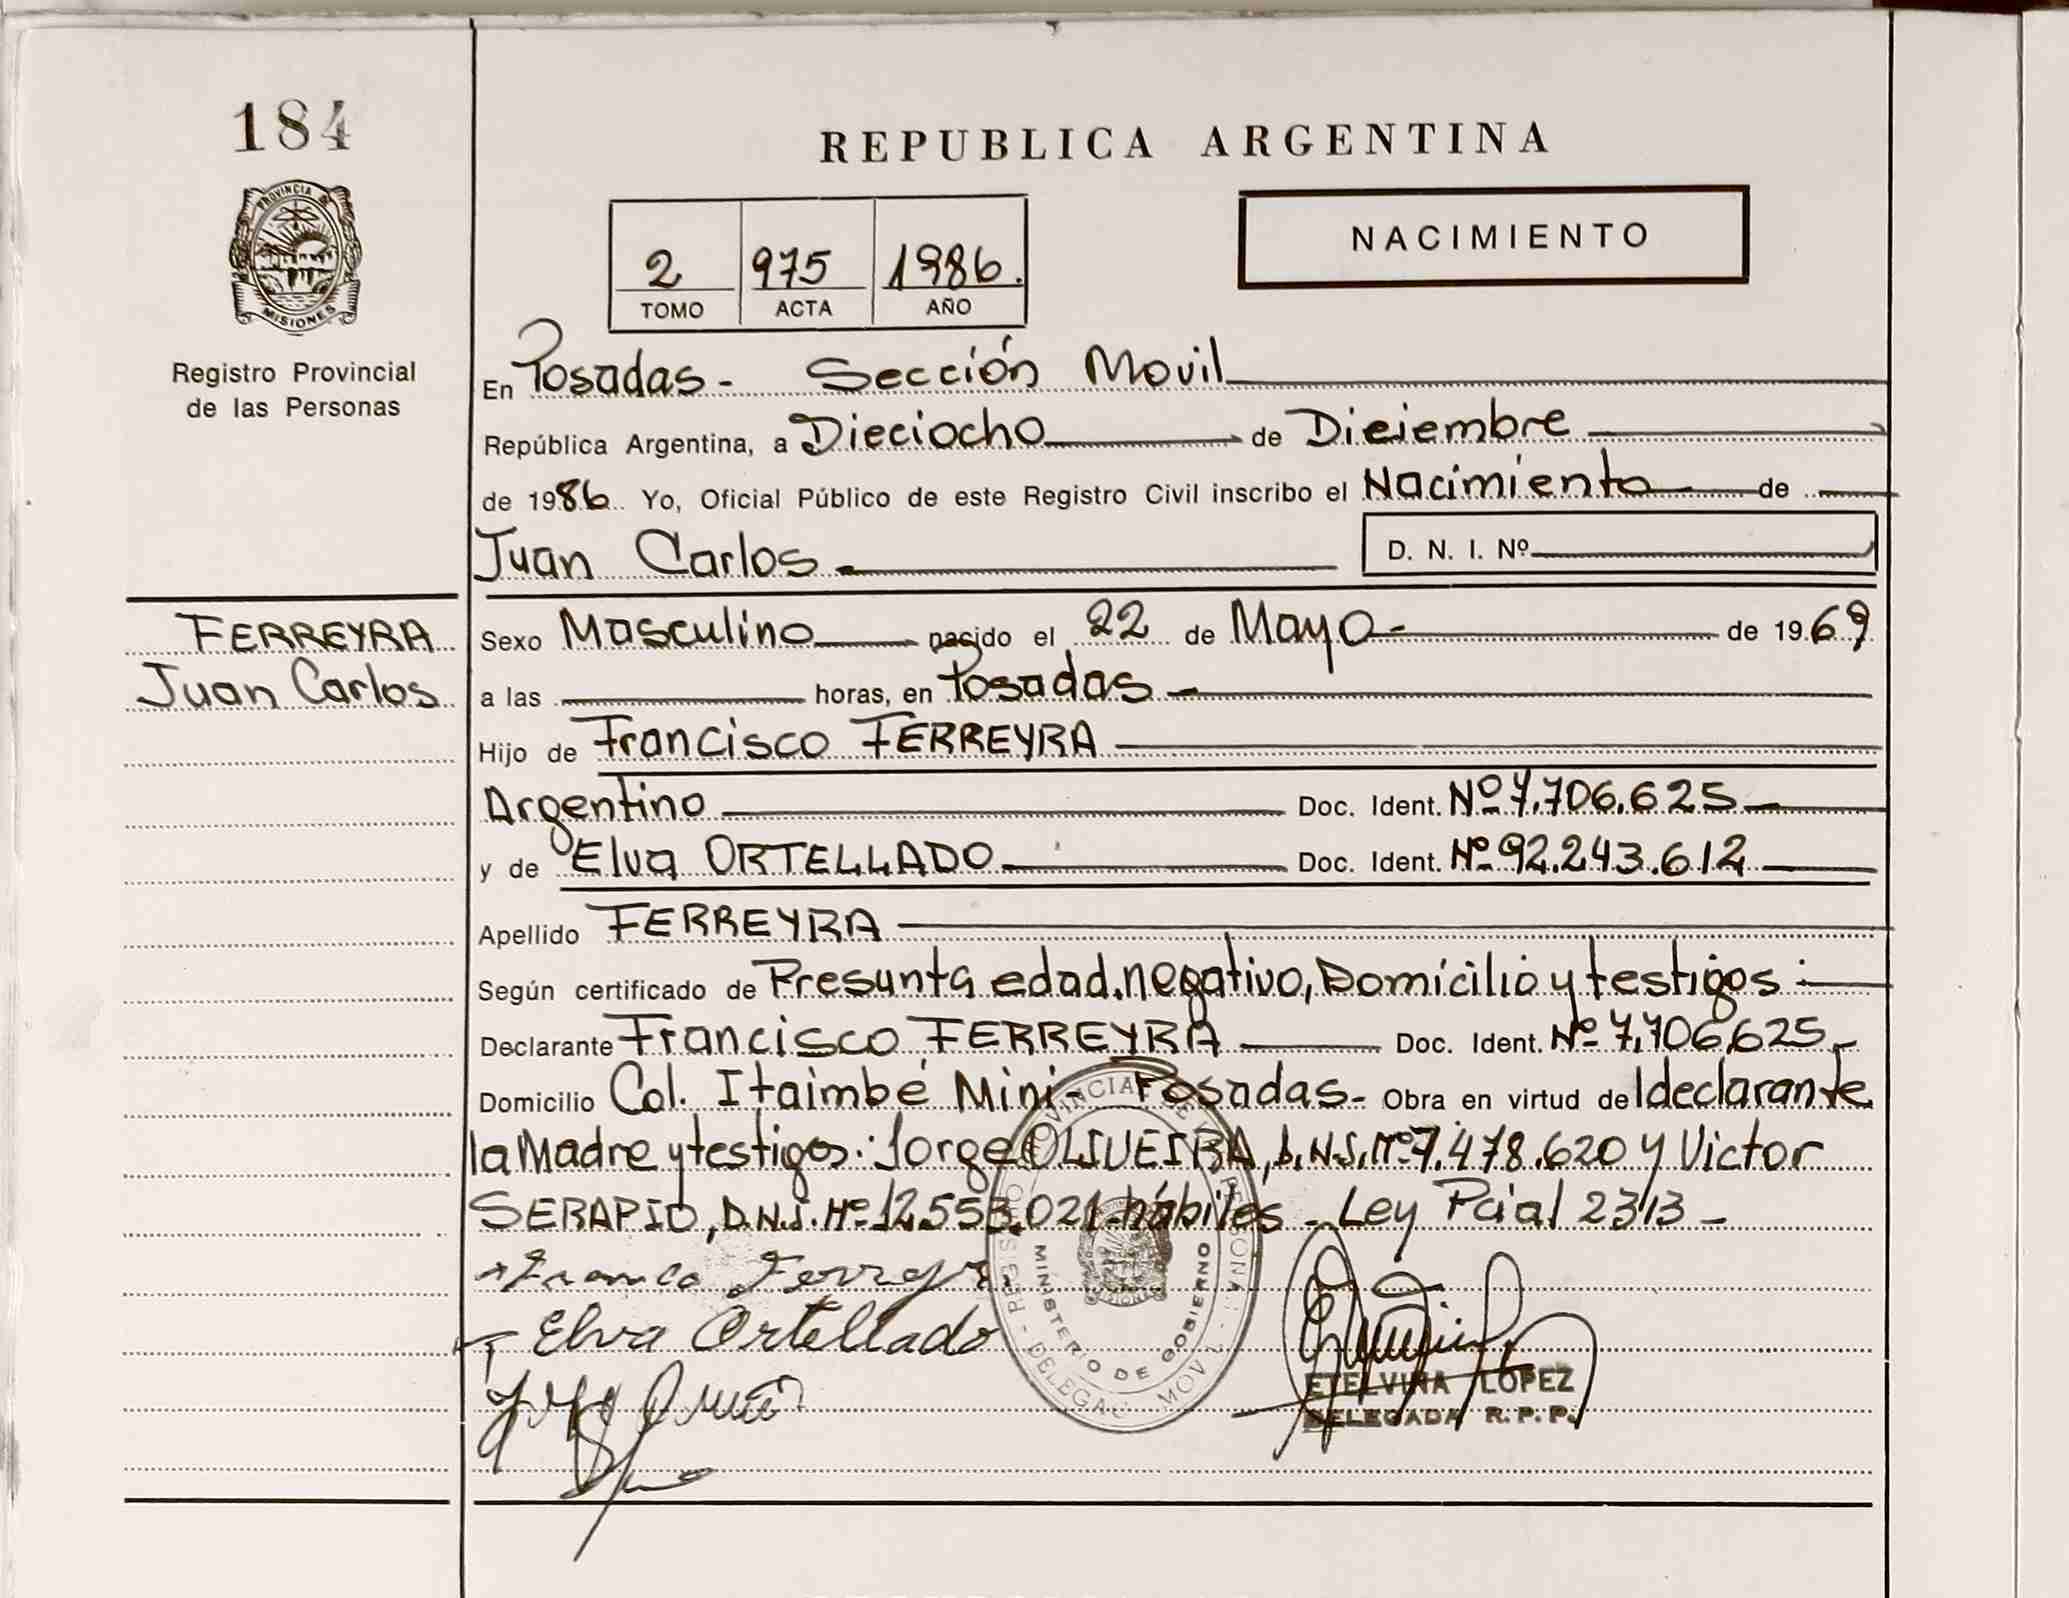 184
REPUBLICA ARGENTINA
PROVINCIA DE
MISIONES
Registro Provincial
de las Personas
2 975 1986.
TOMO ACTA AÑO
NACIMIENTO
En Posadas - Sección Movil
República Argentina, a Dieciocho de Diciembre
de 1986 Yo, Oficial Público de este Registro Civil inscribo el Nacimiento de
Juan Carlos - D. N. I. Nº
FERREYRA
Juan Carlos
Sexo Masculino nacido el 22 de Mayo - de 1969
a las horas, en Posadas -
Hijo de Francisco FERREYRA
Argentino Doc. Ident. Nº 7.706.625
y de Elva ORTELLADO Doc. Ident. Nº 92.243.612
Apellido FERREYRA
Según certificado de Presunta edad, negativo, Domicilio y testigos :
Declarante Francisco FERREYRA Doc. Ident. Nº 7.706.625 -
Domicilio Col. Itaimbé Mini - Posadas - Obra en virtud de l declarante
la Madre y testigos: Jorge OLIVEIRA, D.N.I. Nº 7.478.620 y Victor
SERAPIO, D.N.I. Nº 12.553.021 hábiles - Ley Pcial 2313 -
Ferreyra
Elva Ortellado
MINISTERIO DE GOBIERNO
ETELVINA LOPEZ
DELEGADA R.P.P.